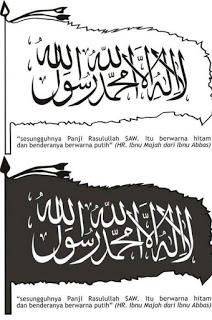 لا إله إلا الله محمد رسول الله
"sesungguhnya Panji Rasulullah SAW. Itu berwarna hitam
dan benderanya berwarna putih" (HR. Ibnu Majah dari Ibnu Abbas)
لا إله إلا الله محمد رسول الله
"sesungguhnya Panji Rasulullah SAW. Itu berwarna hitam
dan benderanya berwarna putih" (HR. Ibnu Majah dari Ibnu Abbas)